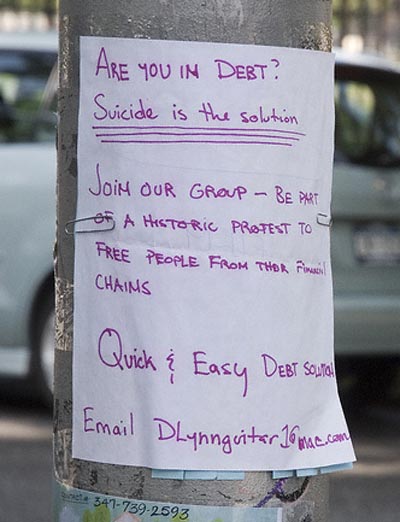 ARE YOU IN DEBT?
Suicide is the solution
JOIN OUR GROUP – BE PART
OF A HISTORIC PROTEST TO
FREE PEOPLE FROM THER FINANCIAL
CHAINS
Quick & Easy DEBT SOLUTION
Email DLynnguitar16mac.com
347-739-2593